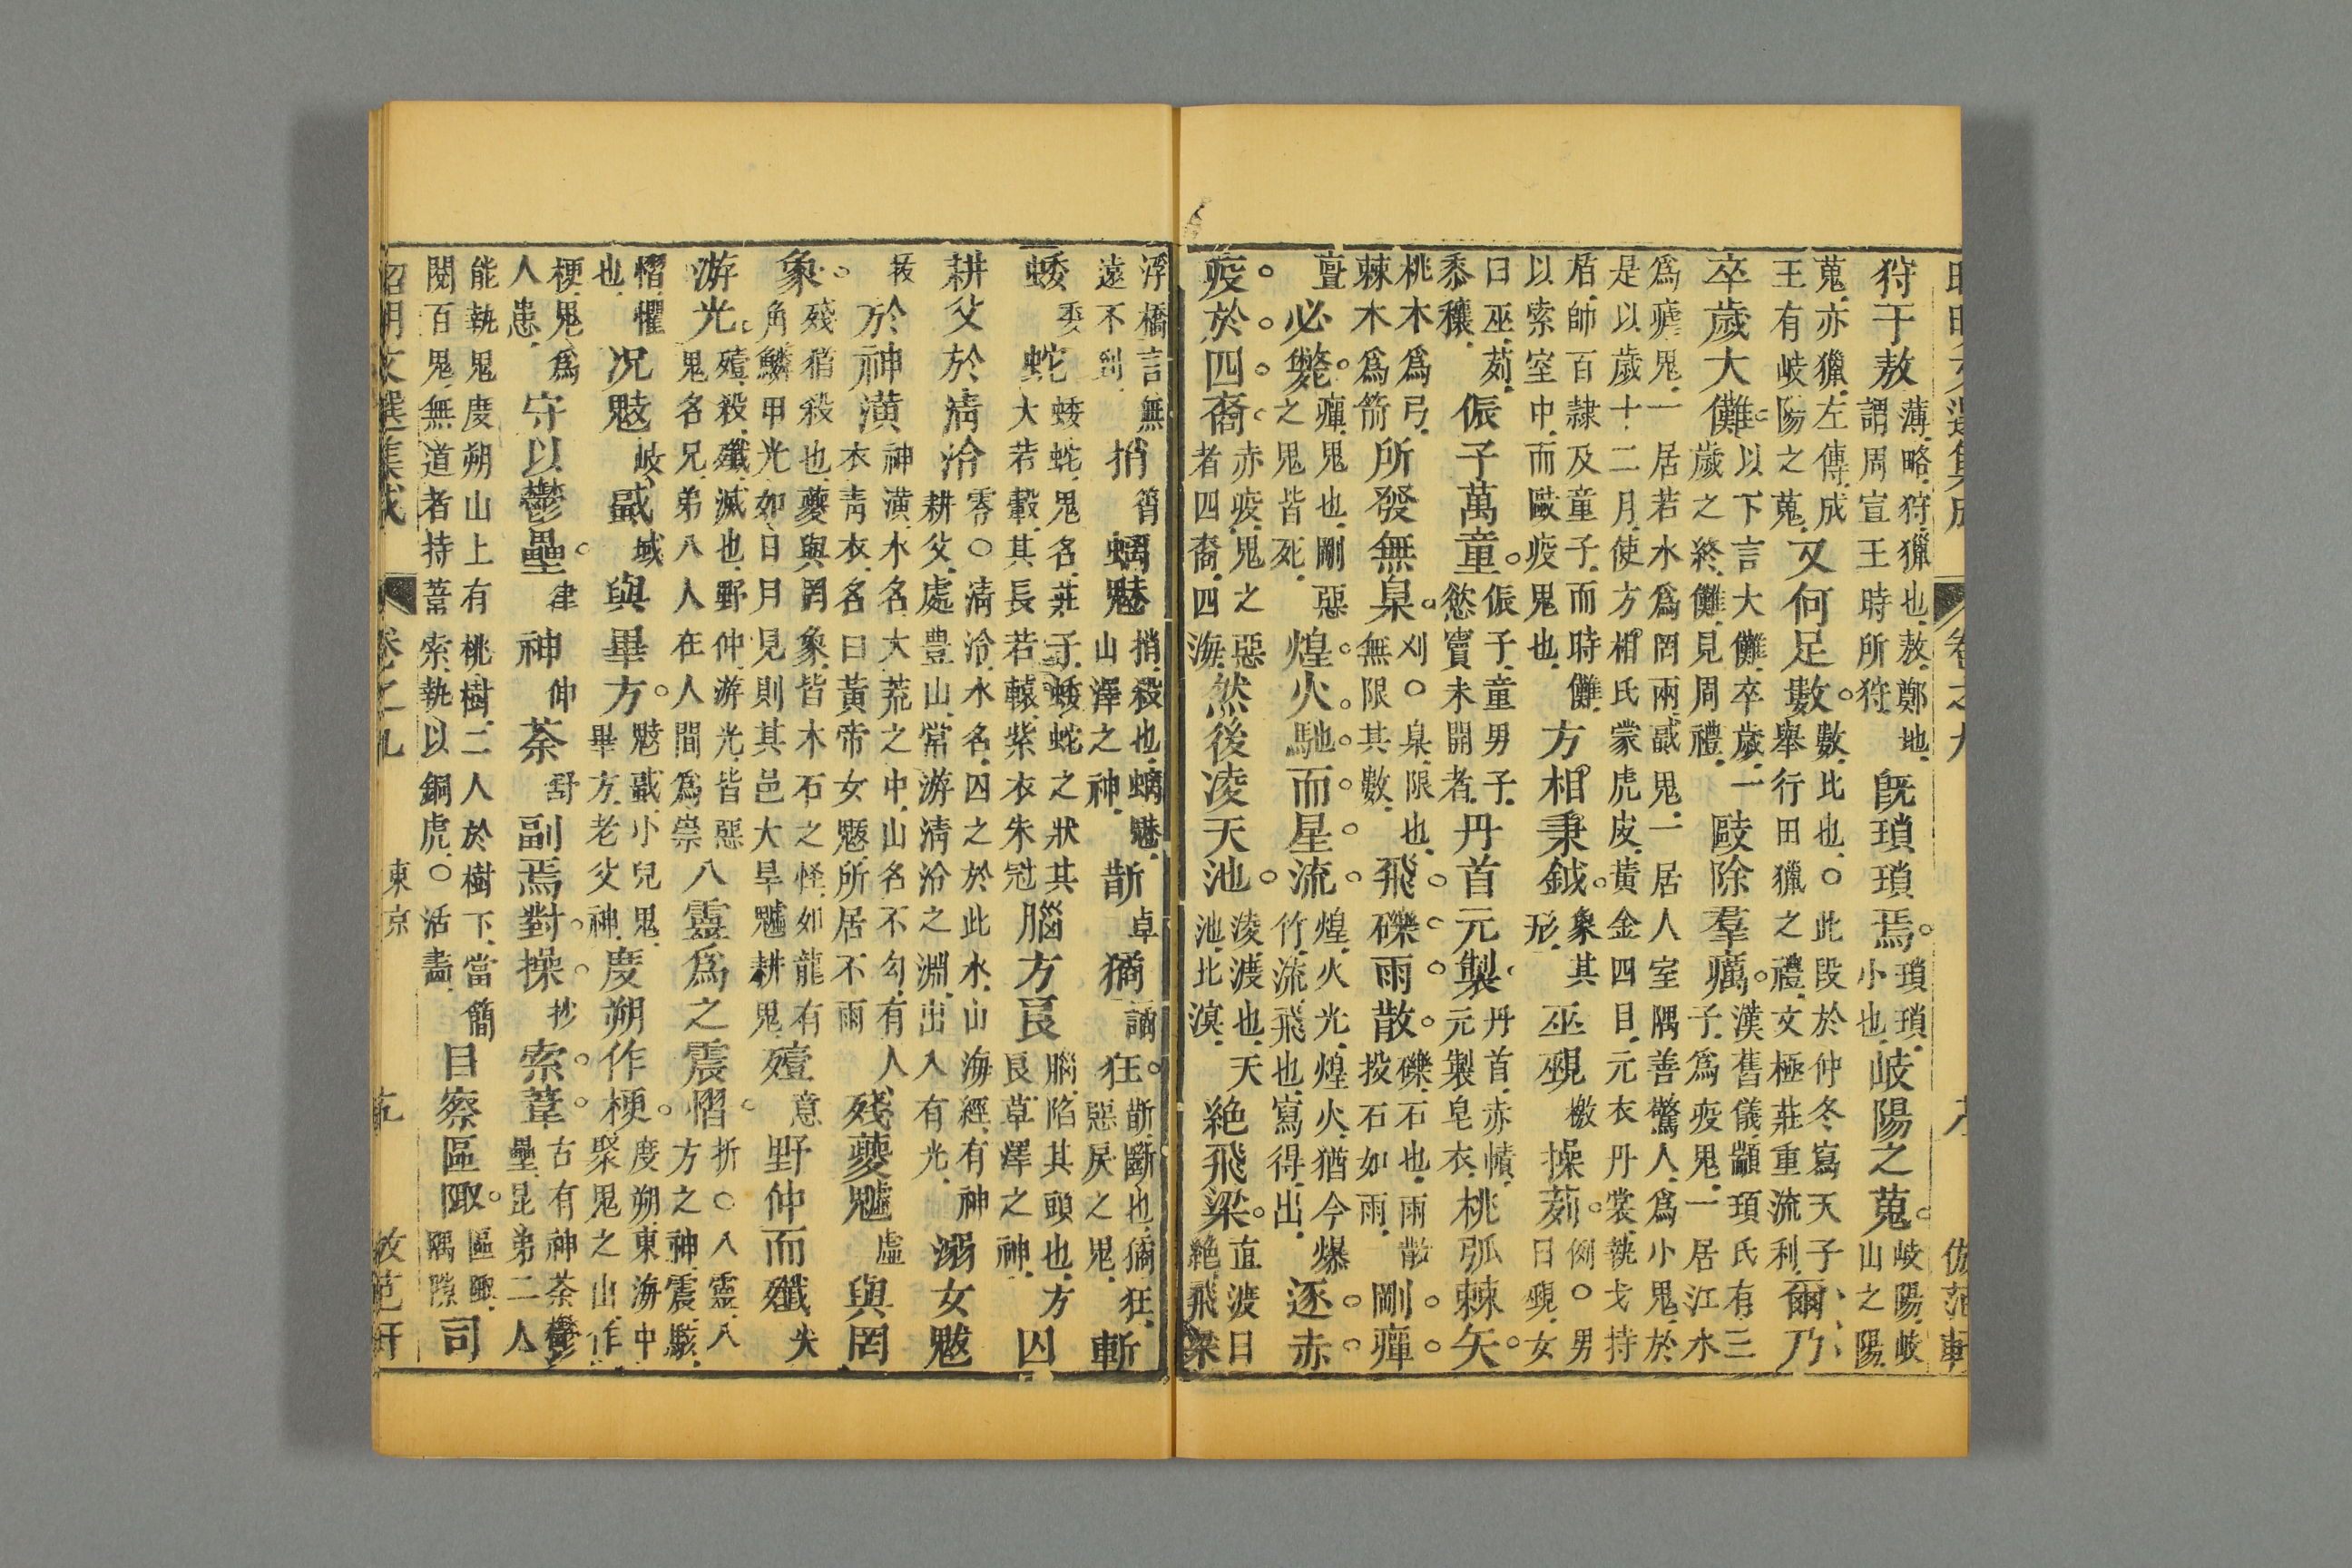 狩于敖薄略狩獵也敖鄭地謂周宣王時所狩既瑣瑣焉。瑣瑣小也岐陽之蒐。岐陽岐山之陽
蒐亦獵左傳成王有岐陽之蒐又何足數。數比也○此段於仲冬寫天子舉行田獵之禮文極莊重流利爾乃
卒歲大儺。以下言大儺卒歲一歲之終儺見周禮毆除羣癘。漢舊儀顓頊氏有三子爲疫鬼一居江水
爲瘧鬼一居若水爲罔兩蜮鬼一居人室隅善驚人爲小鬼於是以歲十二月使方相氏蒙虎皮黃金四目元衣丹裳執戈持
盾帥百隸及童子而時儺以索室中而毆疫鬼也方相秉鉞。象其形巫覡檄操茢。例○男曰覡女
曰巫茢黍穰侲子萬童。侲子童男子慾竇未開者丹首元製丹首赤幘元製皂衣桃弧棘矢。
桃木爲弓棘木爲箭所發無臬。刈○臬限也無限其數飛礫雨散。礫石也雨散投石如雨剛癉
亶必斃。癉鬼也剛惡之鬼皆死煌火馳而星流。煌火光煌火猶今爆竹流飛也寫得出逐赤
疫於四裔。赤疫鬼之惡者四裔四海然後凌天池。凌渡也天池北溟絕飛梁。直渡曰絕飛梁
浮橋言無遠不到捎筲螭魅捎殺也螭魅山澤之神斮卓獝譎狂。斮斷也獝狂惡戾之鬼斬
蜲委蛇蜲蛇鬼名莊子蜲蛇之狀其大若轂其長若轅紫衣朱冠腦方良腦陷其頭也方良草澤之神囚
耕父於清泠零○清泠水名囚之於此水山海經有神耕父處豐山常游清泠之淵出入有光溺女魃
拔於神潢神潢水名大荒之中山名不勾有人衣青衣名曰黃帝女魃所居不雨殘夔魖虛與罔
象。殘猶殺也夔與罔象皆木石之怪如龍有角鱗甲光如日月見則其邑大旱魖耕鬼殪意野仲而殲尖
游光。殪殺殲滅也野仲游光皆惡鬼名兄弟八人在人間爲祟八靈爲之震慴。折○八靈八方之神震駭
慴懼也况鬾岐蜮域與畢方。鬾蜮小兒鬼畢方老父神度朔作梗。度朔東海中聚鬼之山作
梗鬼爲人患守以鬱壘。律神伸荼舒副焉對操。抄索葦。古有神荼鬱壘昆弟二人
能執鬼度朔山上有桃樹二人於樹下當簡閱百鬼無道者持葦索執以銅虎○活畫目察區陬。區陬隅隙司
昭明文選集成 卷之九 東京